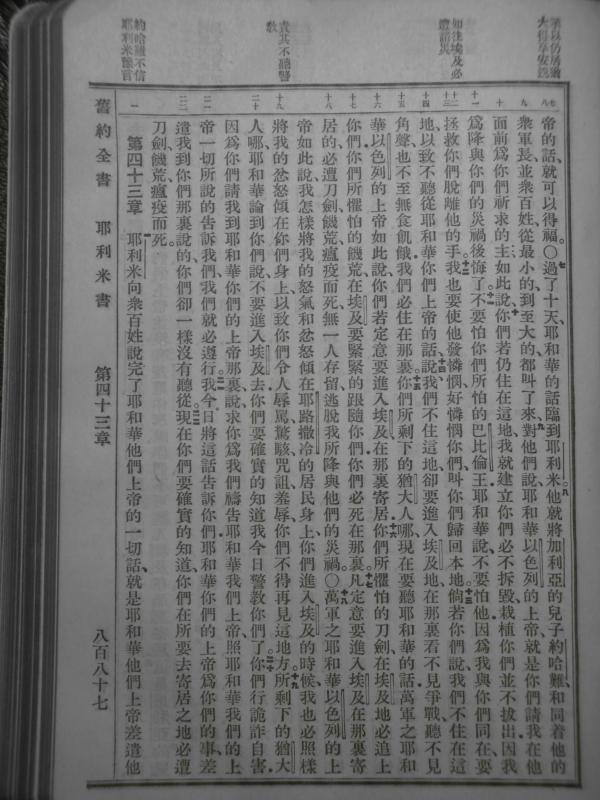 如往埃及必
遭諸災
責其不聽警
教
約哈難不信
耶利米預言
帝的話、就可以得福。○過了十天、耶和華的話臨到耶利米。他就將加利亞的兒子約哈難、和同着他的
衆軍長、並衆百姓、從最小的到至大的、都叫了來、對他們說、耶和華以色列的上帝、就是你們請我在他
面前爲你們祈求的主、如此說、你們若仍住在這地、我就建立你們、必不拆毀、栽植你們、並不拔出、因我
爲降與你們的災禍後悔了。不要怕你們所怕的巴比倫王、耶和華說、不要怕他、因爲我與你們同在、要
拯救你們脫離他的手。我也要使他發憐憫、好憐憫你們、叫你們歸回本地。倘若你們說、我們不住在這
地、以致不聽從耶和華你們上帝的話、說、我們不住這地、卻要進入埃及地、在那裏看不見爭戰、聽不見
角聲、也不至無食飢餓、我們必住在那裏。你們所剩下的猶大人哪、現在要聽耶和華的話、萬軍之耶和
華以色列的上帝如此說、你們若定意要進入埃及、在那裏寄居、你們所懼怕的刀劍、在埃及地必追上
你們、你們所懼怕的饑荒、在埃及要緊緊的跟隨你們、你們必死在那裏。凡定意要進入埃及在那裏寄
居的、必遭刀劍、饑荒、瘟疫而死、無一人存留、逃脫我所降與他們的災禍。○萬軍之耶和華以色列的上
帝如此說、我怎樣將我的怒氣和忿怒傾在耶路撒冷的居民身上、你們進入埃及的時候、我也必照樣
將我的忿怒傾在你們身上、以致你們令人辱罵、驚駭、咒詛、羞辱、你們不得再見這地方。所剩下的猶大
人哪、耶和華論到你們說、不要進入埃及去、你們要確實的知道我今日警教你們了。你們行詭詐自害、
因爲你們請我到耶和華你們的上帝那裏、說、求你爲我們禱告耶和華我們上帝、照耶和華我們的上
帝一切所說的告訴我們、我們就必遵行。我今日將這話告訴你們、耶和華你們的上帝爲你們的事、差
遣我到你們那裏說的、你們卻一樣沒有聽從。現在你們要確實的知道、你們在所要去寄居之地必遭
刀劍、饑荒、瘟疫而死。
第四十三章　耶利米向衆百姓說完了耶和華他們上帝的一切話、就是耶和華他們上帝差遣他
舊約全書　耶利米書　第四十三章　八百八十七